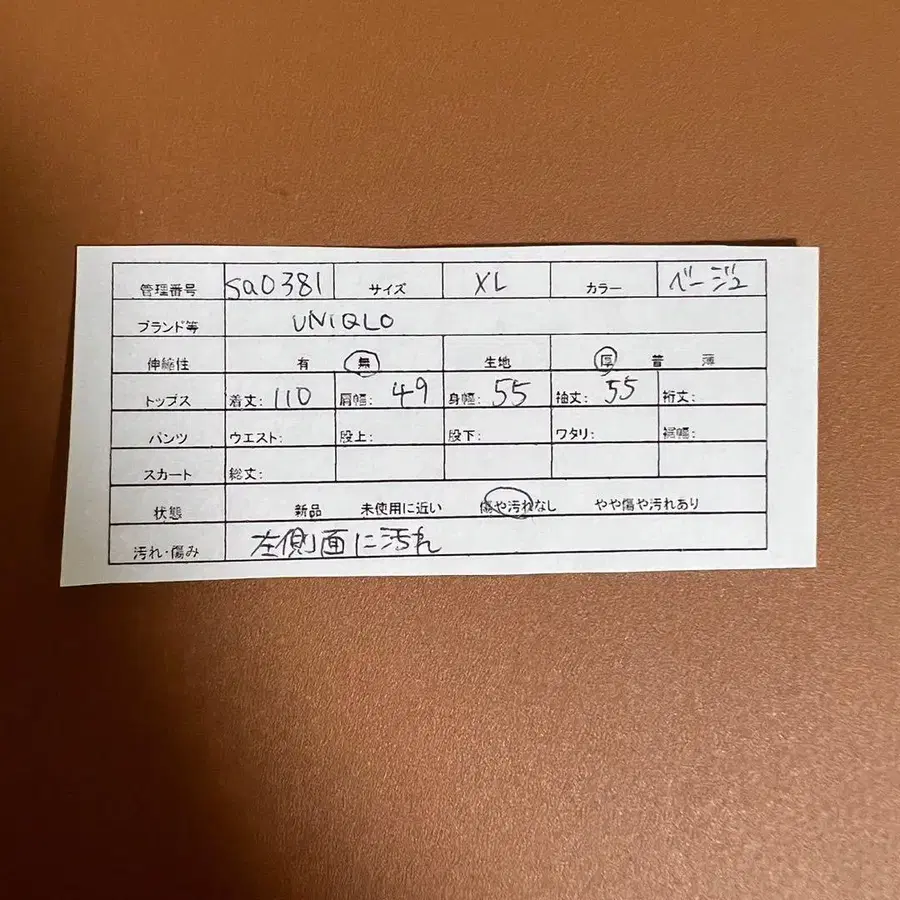 管理番号 sa0381 サイズ XL カラー ベージュ
ブランド等 UNIQLO
伸縮性 有 無 生地 厚 普 薄
トップス 着丈: 110 肩幅: 49 身幅: 55 袖丈: 55 裄丈:
パンツ ウエスト: 股上: 股下: ワタリ: 裾幅:
スカート 総丈:
状態 新品 未使用に近い 傷や汚れなし やや傷や汚れあり
汚れ・傷み 左側面に汚れ